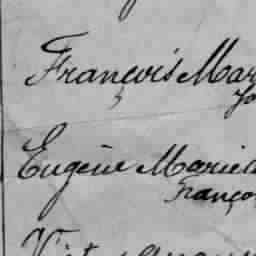 François Mar
Eugène Marie
Franço